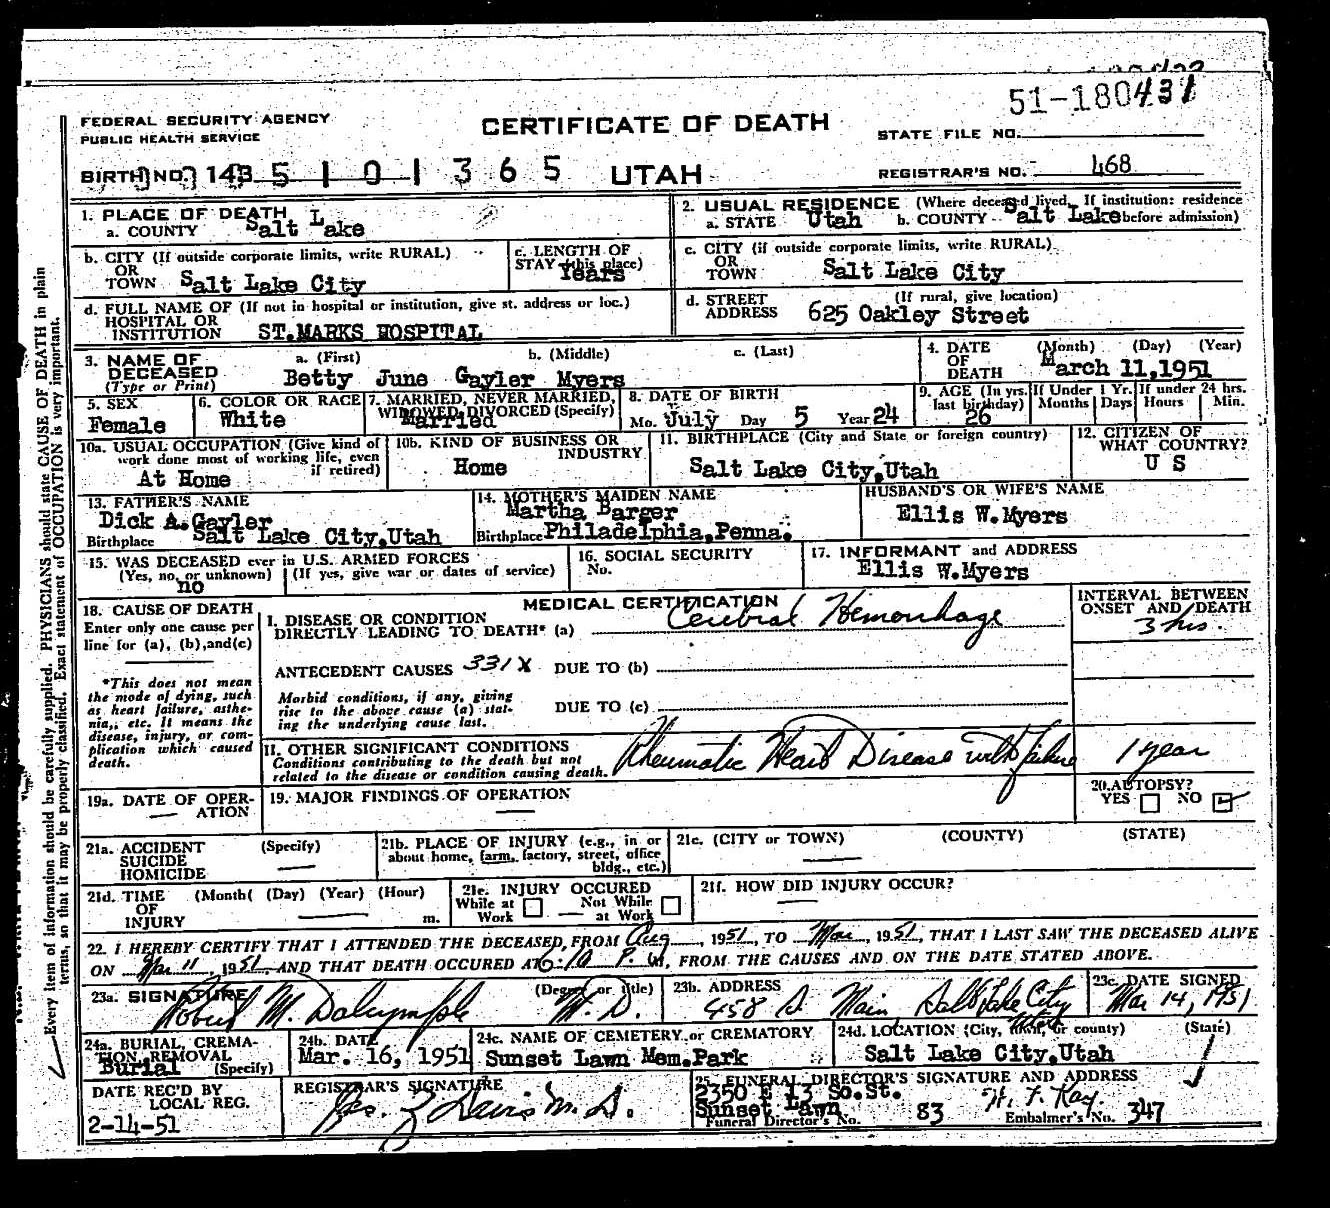 51-180431
FEDERAL SECURITY AGENCY
PUBLIC HEALTH SERVICE
CERTIFICATE OF DEATH
STATE FILE NO.
BIRTH NO. 143 5101365 UTAH
REGISTRAR'S NO. 468
1. PLACE OF DEATH
a. COUNTY Salt Lake
2. USUAL RESIDENCE (Where deceased lived. If institution: residence before admission)
a. STATE Utah b. COUNTY Salt Lake
b. CITY (If outside corporate limits, write RURAL)
OR
TOWN Salt Lake City
c. LENGTH OF STAY (this place)
Years
c. CITY (if outside corporate limits, write RURAL)
OR
TOWN Salt Lake City
d. FULL NAME OF (If not in hospital or institution, give st. address or loc.)
HOSPITAL OR
INSTITUTION ST.MARKS HOSPITAL
d. STREET (If rural, give location)
ADDRESS 625 Oakley Street
3. NAME OF DECEASED
(Type or Print)
a. (First) b. (Middle) c. (Last)
Betty June Gayler Myers
4. DATE OF DEATH (Month) (Day) (Year)
March 11,1951
5. SEX
Female
6. COLOR OR RACE
White
7. MARRIED, NEVER MARRIED,
WIDOWED, DIVORCED (Specify)
Married
8. DATE OF BIRTH
Mo. July Day 5 Year 24
9. AGE (In yrs. last birthday)
26
If Under 1 Yr.
Months Days
If under 24 hrs.
Hours Min.
10a. USUAL OCCUPATION (Give kind of
work done most of working life, even
if retired)
At Home
10b. KIND OF BUSINESS OR
INDUSTRY
Home
11. BIRTHPLACE (City and State or foreign country)
Salt Lake City,Utah
12. CITIZEN OF
WHAT COUNTRY?
U S
13. FATHER'S NAME
Dick A.Gayler
Birthplace Salt Lake City,Utah
14. MOTHER'S MAIDEN NAME
Martha Barger
Birthplace Philadelphia,Penna.
HUSBAND'S OR WIFE'S NAME
Ellis W.Myers
15. WAS DECEASED ever in U.S. ARMED FORCES
(Yes, no, or unknown) (If yes, give war or dates of service)
no
16. SOCIAL SECURITY
No.
17. INFORMANT and ADDRESS
Ellis W.Myers
18. CAUSE OF DEATH
Enter only one cause per
line for (a), (b),and(c)
*This does not mean
the mode of dying, such
as heart failure, asthe-
nia,, etc. It means the
disease, injury, or com-
plication which caused
death.
MEDICAL CERTIFICATION
I. DISEASE OR CONDITION
DIRECTLY LEADING TO DEATH* (a) Cerebral Hemorrhage
INTERVAL BETWEEN
ONSET AND DEATH
3 hrs.
ANTECEDENT CAUSES 331X DUE TO (b)
Morbid conditions, if any, giving
rise to the above cause (a) stat-
ing the underlying cause last.
DUE TO (c)
II. OTHER SIGNIFICANT CONDITIONS
Conditions contributing to the death but not
related to the disease or condition causing death.
Rheumatic Heart Disease with failure 1 year
19a. DATE OF OPER-
ATION
19. MAJOR FINDINGS OF OPERATION
20. AUTOPSY?
YES NO
21a. ACCIDENT (Specify)
SUICIDE
HOMICIDE
21b. PLACE OF INJURY (e.g., in or
about home, farm, factory, street, office
bldg., etc.)
21c. (CITY or TOWN) (COUNTY) (STATE)
21d. TIME (Month( (Day) (Year) (Hour)
OF
INJURY m.
21e. INJURY OCCURED
While at Work Not While at Work
21f. HOW DID INJURY OCCUR?
22. I HEREBY CERTIFY THAT I ATTENDED THE DECEASED, FROM Aug, 1951, TO Mar, 1951, THAT I LAST SAW THE DECEASED ALIVE
ON Mar 11, 1951, AND THAT DEATH OCCURED AT 6:10 P.M., FROM THE CAUSES AND ON THE DATE STATED ABOVE.
23a. SIGNATURE (Degree or title)
Robert M. Dalrymple M.D.
23b. ADDRESS
458 S. Main Salt Lake City
23c. DATE SIGNED
Mar 14, 1951
24a. BURIAL, CREMA-
TION, REMOVAL
(Specify)
Burial
24b. DATE
Mar. 16, 1951
24c. NAME OF CEMETERY or CREMATORY
Sunset Lawn Mem.Park
24d. LOCATION (City, town, or county) (State)
Salt Lake City,Utah
DATE REC'D BY
LOCAL REG.
2-14-51
REGISTRAR'S SIGNATURE
25. FUNERAL DIRECTOR'S SIGNATURE AND ADDRESS
2350 E 13 So.St.
Sunset Lawn 83 H. F. Kay 347
Funeral Director's No. Embalmer's No.
Every item of information should be carefully supplied. PHYSICIANS should state CAUSE OF DEATH in plain
terms, so that it may be properly classified. Exact statement of OCCUPATION is very important.